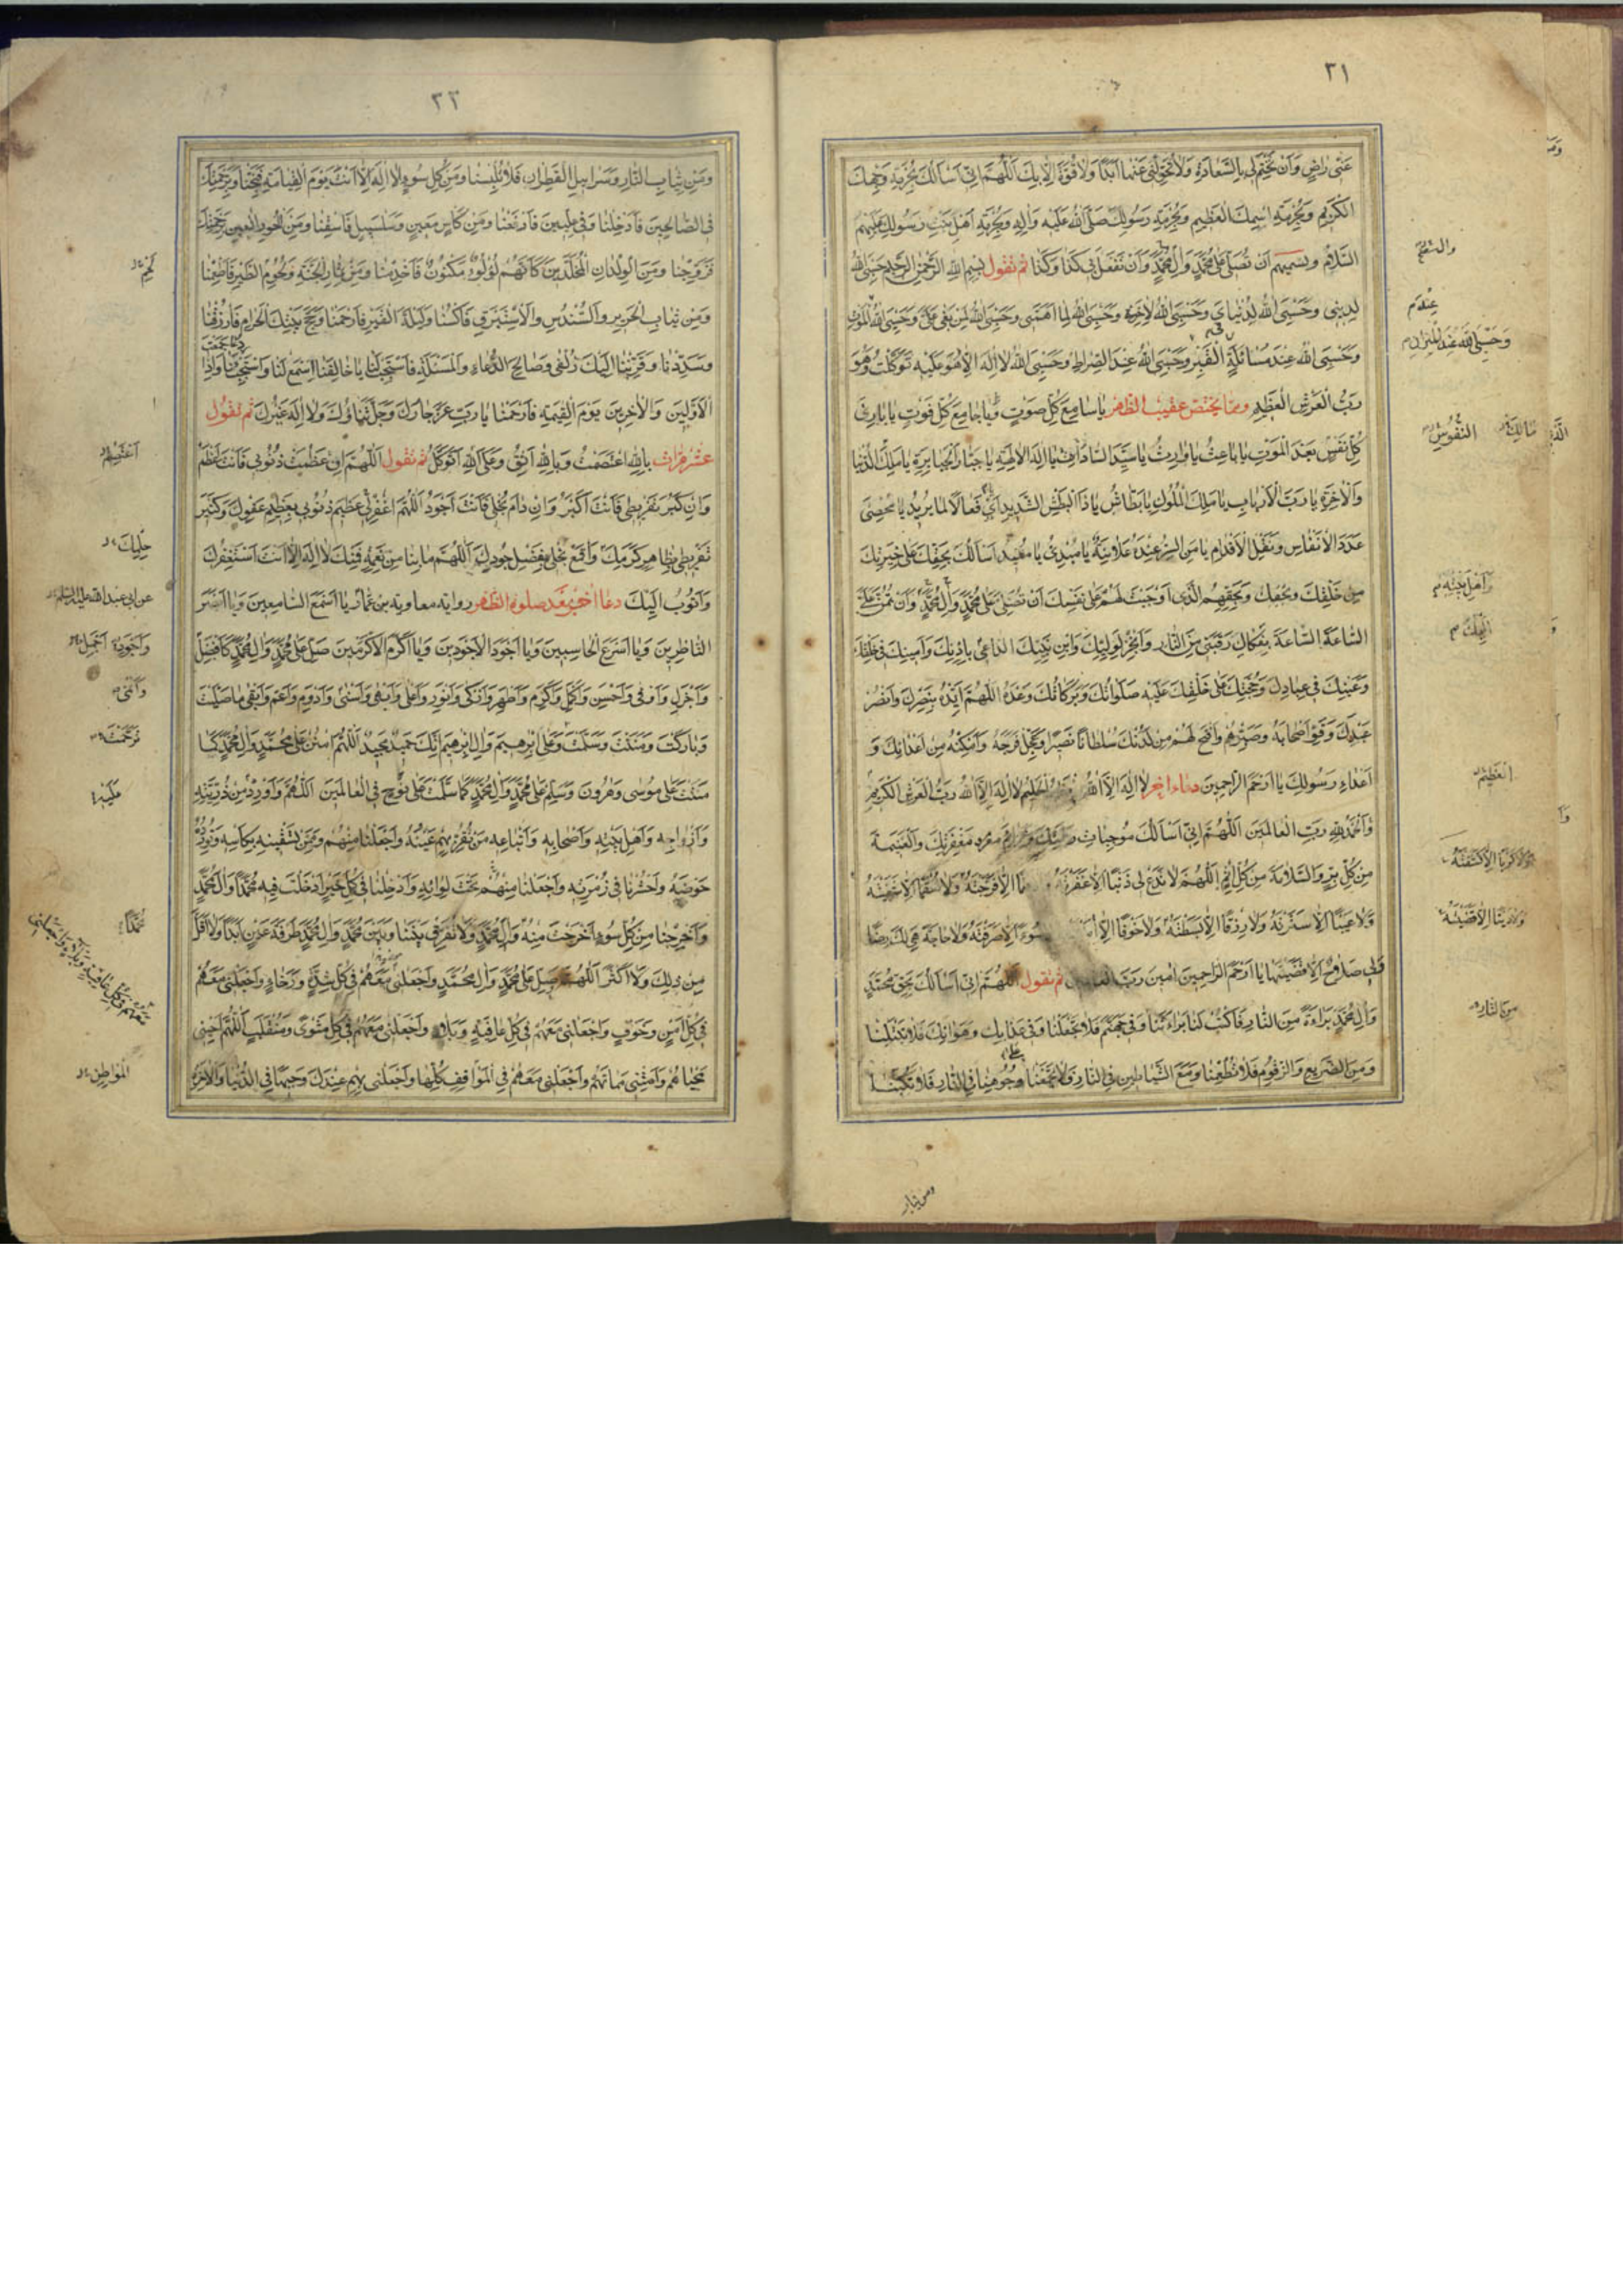 ٣١
عَنّى رٰاضٍ وَاَنْ تَخْتِمَ لى بِالسَّعٰادَةِ وَلاٰ تُحَوِّلْنى عَنْهٰا اَبَدًا وَلاٰ قُوَّةَ اِلاّٰ بِكَ اَللّٰهُمَّ اِنّى اَسْأَلُكَ بِحُرْمَةِ وَجْهِكَ
الْكَريمِ وَبِحُرْمَةِ اسْمِكَ الْعَظيمِ وَبِحُرْمَةِ رَسُولِكَ صَلَّى اللهُ عَلَيْهِ وَاٰلِهِ وَبِحُرْمَةِ اَهْلِ بَيْتِ رَسُولِكَ عَلَيْهِمُ
السَّلاٰمُ ويسميهم اَنْ تُصَلِّىَ عَلىٰ مُحَمَّدٍ وَاٰلِ مُحَمَّدٍ وَاَنْ تَفْعَلَ بى كَذٰا وَكَذٰا ثم تقول بِسْمِ اللهِ الرَّحْمٰنِ الرَّحيمِ حَسْبِىَ اللهُ
لِدينى وَحَسْبِىَ اللهُ لِدُنْيٰاىَ وَحَسْبِىَ اللهُ لِاٰخِرَتى وَحَسْبِىَ اللهُ لِمٰا اَهَمَّنى وَحَسْبِىَ اللهُ لِمَنْ بَغىٰ عَلَىَّ وَحَسْبِىَ اللهُ عِنْدَ الْمَوْتِ
وَحَسْبِىَ اللهُ عِنْدَ مُسٰائَلَةِ الْقَبْرِ وَحَسْبِىَ اللهُ عِنْدَ الصِّرٰاطِ وَحَسْبِىَ اللهُ لاٰ اِلٰهَ اِلاّٰ هُوَ عَلَيْهِ تَوَكَّلْتُ وَهُوَ
رَبُّ الْعَرْشِ الْعَظيمِ ومما يختص عقيب الظهر يٰا سٰامِعَ كُلِّ صَوْتٍ وَيٰا جٰامِعَ كُلِّ فَوْتٍ يٰا بٰارِئَ
كُلِّ نَفْسٍ بَعْدَ الْمَوْتِ يٰا بٰاعِثُ يٰا وٰارِثُ يٰا سَيِّدَ السّٰادٰاتِ يٰا اِلٰهَ الْاٰلِهَةِ يٰا جَبّٰارَ الْجَبٰابِرَةِ يٰا مَلِكَ الدُّنْيٰا
وَالْاٰخِرَةِ يٰا رَبَّ الْاَرْبٰابِ يٰا مَلِكَ الْمُلُوكِ يٰا بَطّٰاشُ يٰا ذَا الْبَطْشِ الشَّديدِ اَىْ فَعّٰالاً لِمٰا يُريدُ يٰا مُحْصِىَ
عَدَدِ الْاَنْفٰاسِ وَنَقْلِ الْاَقْدٰامِ يٰا مَنِ السِّرُّ عِنْدَهُ عَلاٰنِيَةٌ يٰا مُبْدِئُ يٰا مُعيدُ اَسْأَلُكَ بِحَقِّكَ عَلىٰ خِيَرَتِكَ
مِنْ خَلْقِكَ وَبِحَقِّكَ وَبِحَقِّهِمُ الَّذى اَوْجَبْتَ لَهُمْ عَلىٰ نَفْسِكَ اَنْ تُصَلِّىَ عَلىٰ مُحَمَّدٍ وَاٰلِ مُحَمَّدٍ وَاَنْ تَمُنَّ عَلَىَّ
السّٰاعَةَ السّٰاعَةَ بِفَكٰاكِ رَقَبَتى مِنَ النّٰارِ وَاَنْجِزْ لِوَلِيِّكَ وَابْنِ نَبِيِّكَ الدّٰاعى بِاِذْنِكَ وَاَمينِكَ فى خَلْقِكَ
وَعَيْنِكَ فى عِبٰادِكَ وَحُجَّتِكَ عَلىٰ خَلْقِكَ عَلَيْهِ صَلَوٰاتُكَ وَبَرَكٰاتُكَ وَعْدَهُ اللّٰهُمَّ اَيِّدْهُ بِنَصْرِكَ وَانْصُرْ
عَبْدَكَ وَقَوِّ اَصْحٰابَهُ وَصَبِّرْهُمْ وَافْتَحْ لَهُمْ مِنْ لَدُنْكَ سُلْطٰانًا نَصيرًا وَعَجِّلْ فَرَجَهُ وَاَمْكِنْهُ مِنْ اَعْدٰائِكَ وَ
اَعْدٰاءِ رَسُولِكَ يٰا اَرْحَمَ الرّٰاحِمينَ دعاء اخر لاٰ اِلٰهَ اِلاَّ اللهُ الْحَليمُ لاٰ اِلٰهَ اِلاَّ اللهُ رَبُّ الْعَرْشِ الْكَريمِ
وَالْحَمْدُ لِلّٰهِ رَبِّ الْعٰالَمينَ اَللّٰهُمَّ اِنّى اَسْأَلُكَ مُوجِبٰاتِ مَغْفِرَتِكَ وَالْغَنيمَةَ
مِنْ كُلِّ بِرٍّ وَالسَّلاٰمَةَ مِنْ كُلِّ اِثْمٍ اَللّٰهُمَّ لاٰ تَدَعْ لى ذَنْبًا اِلاّٰ غَفَرْتَهُ اِلاّٰ فَرَّجْتَهُ وَلاٰ سُقْمًا اِلاّٰ شَفَيْتَهُ
وَلاٰ عَيْبًا اِلاّٰ سَتَرْتَهُ وَلاٰ رِزْقًا اِلاّٰ بَسَطْتَهُ وَلاٰ خَوْفًا اِلاّٰ سُوءًا اِلاّٰ صَرَفْتَهُ وَلاٰ حٰاجَةً هِىَ لَكَ رِضًا
وَلِىَ صَلاٰحٌ اِلاّٰ قَضَيْتَهٰا يٰا اَرْحَمَ الرّٰاحِمينَ اٰمينَ رَبَّ الْعٰالَمينَ ثم تقول اَللّٰهُمَّ اِنّى اَسْأَلُكَ بِحَقِّ مُحَمَّدٍ
وَاٰلِ مُحَمَّدٍ بَرٰاءَةً مِنَ النّٰارِ فَاكْتُبْ لَنٰا بَرٰاءَتَنٰا وَفى جَهَنَّمَ فَلاٰ تَجْعَلْنٰا وَفى عَذٰابِكَ وَهَوٰانِكَ فَلاٰ تَبْتَلِنٰا
وَمِنَ الضَّريعِ وَالزَّقُّومِ فَلاٰ تُطْعِمْنٰا وَمَعَ الشَّيٰاطينِ فِى النّٰارِ فَلاٰ تَجْمَعْنٰا وُجُوهِنٰا فِى النّٰارِ فَلاٰ تَكْبُبْنٰا
عِنْدَ
وَحَسْبِىَ اللهُ عِنْدَ الْميزٰانِ
النُّفُوسِ
وَاَهْلِ بَيْتِهِ
الْعَظيمِ
مِنَ النّٰارِ
ومن ثياب
٣٢
وَمِنْ ثِيٰابِ النّٰارِ وَسَرٰابيلِ الْقَطِرٰانِ فَلاٰ تُلْبِسْنٰا وَمِنْ كُلِّ سُوءٍ لاٰ اِلٰهَ اِلاّٰ اَنْتَ يَوْمَ الْقِيٰامَةِ فَنَجِّنٰا وَبِرَحْمَتِكَ
فِى الصّٰالِحينَ فَاَدْخِلْنٰا وَفى عِلِّيّينَ فَارْفَعْنٰا وَمِنْ كَأْسٍ مَعينٍ وَسَلْسَبيلٍ فَاسْقِنٰا وَمِنَ الْحُورِ الْعينِ بِرَحْمَتِكَ
فَزَوِّجْنٰا وَمِنَ الْوِلْدٰانِ الْمُخَلَّدينَ كَاَنَّهُمْ لُؤْلُؤٌ مَكْنُونٌ فَاَخْدِمْنٰا وَمِنْ ثِمٰارِ الْجَنَّةِ وَلُحُومِ الطَّيْرِ فَاَطْعِمْنٰا
وَمِنْ ثِيٰابِ الْحَريرِ وَالسُّنْدُسِ وَالْاِسْتَبْرَقِ فَاكْسُنٰا وَلَيْلَةَ الْقَدْرِ فَارْحَمْنٰا وَحَجَّ بَيْتِكَ الْحَرٰامِ فَارْزُقْنٰا
وَسَدِّدْنٰا وَقَرِّبْنٰا اِلَيْكَ زُلْفىٰ وَصٰالِحَ الدُّعٰاءِ وَالْمَسْئَلَةِ فَاسْتَجِبْ لَنٰا يٰا خٰالِقَنٰا اسْمَعْ لَنٰا وَاسْتَجِبْ وَاِذٰا جَمَعْتَ
الْاَوَّلينَ وَالْاٰخِرينَ يَوْمَ الْقِيٰمَةِ فَارْحَمْنٰا يٰا رَبِّ عَزَّ جٰارُكَ وَجَلَّ ثَنٰاؤُكَ وَلاٰ اِلٰهَ غَيْرُكَ ثم تقول
عشر مرات بِاللهِ اعْتَصَمْتُ وَبِاللهِ اَثِقُ وَعَلَى اللهِ اَتَوَكَّلُ ثم تقول اَللّٰهُمَّ اِنْ عَظُمَتْ ذُنُوبى فَاَنْتَ اَعْظَمُ
وَاِنْ كَبُرَ تَفْريطى فَاَنْتَ اَكْبَرُ وَاِنْ دٰامَ بُخْلى فَاَنْتَ اَجْوَدُ اَللّٰهُمَّ اغْفِرْ لى عَظيمَ ذُنُوبى بِعَظيمِ عَفْوِكَ وَكَثيرَ
تَفْريطى بِظٰاهِرِ كَرَمِكَ وَاقْمَعْ بُخْلى بِفَضْلِ جُودِكَ اَللّٰهُمَّ مٰا بِنٰا مِنْ نِعْمَةٍ فَمِنْكَ لاٰ اِلٰهَ اِلاّٰ اَنْتَ اَسْتَغْفِرُكَ
وَاَتُوبُ اِلَيْكَ دعاء اخر بعد صلوة الظهر رواية معاوية بن عمار يٰا اَسْمَعَ السّٰامِعينَ وَيٰا اَبْصَرَ
النّٰاظِرينَ وَيٰا اَسْرَعَ الْحٰاسِبينَ وَيٰا اَجْوَدَ الْاَجْوَدينَ وَيٰا اَكْرَمَ الْاَكْرَمينَ صَلِّ عَلىٰ مُحَمَّدٍ وَاٰلِ مُحَمَّدٍ كَاَفْضَلِ
وَاَجْزَلِ وَاَوْفىٰ وَاَحْسَنِ وَاَكْمَلِ وَاَكْرَمِ وَاَطْهَرِ وَاَزْكىٰ وَاَنْوَرِ وَاَعْلىٰ وَاَبْهىٰ وَاَسْنىٰ وَاَدْوَمِ وَاَعَمِّ وَاَبْقىٰ مٰا صَلَّيْتَ
وَبٰارَكْتَ وَمَنَنْتَ وَسَلَّمْتَ وَعَلىٰ اِبْرٰهيمَ وَاٰلِ اِبْرٰهيمَ اِنَّكَ حَميدٌ مَجيدٌ اَللّٰهُمَّ امْنُنْ عَلىٰ مُحَمَّدٍ وَاٰلِ مُحَمَّدٍ كَمٰا
مَنَنْتَ عَلىٰ مُوسىٰ وَهٰرُونَ وَسَلِّمْ عَلىٰ مُحَمَّدٍ وَاٰلِ مُحَمَّدٍ كَمٰا سَلَّمْتَ عَلىٰ نُوحٍ فِى الْعٰالَمينَ اَللّٰهُمَّ وَاَوْرِدْ مِنْ ذُرِّيَّتِهِ
وَاَزْوٰاجِهِ وَاَهْلِ بَيْتِهِ وَاَصْحٰابِهِ وَاَتْبٰاعِهِ مَنْ تُقِرُّ بِهِمْ عَيْنَهُ وَاجْعَلْنٰا مِنْهُمْ وَمِمَّنْ تَسْقيهِ بِكَأْسِهِ وَتُورِدُهُ
حَوْضَهُ وَاحْشُرْنٰا فى زُمْرَتِهِ وَاجْعَلْنٰا مِنْهُمْ تَحْتَ لِوٰائِهِ وَاَدْخِلْنٰا فى كُلِّ خَيْرٍ اَدْخَلْتَ فيهِ مُحَمَّدًا وَاٰلَ مُحَمَّدٍ
وَاَخْرِجْنٰا مِنْ كُلِّ سُوءٍ اَخْرَجْتَ مِنْهُ وَاٰلَ مُحَمَّدٍ وَلاٰ تُفَرِّقْ بَيْنَنٰا وَبَيْنَ مُحَمَّدٍ وَاٰلِ مُحَمَّدٍ طَرْفَةَ عَيْنٍ اَبَدًا وَلاٰ اَقَلَّ
مِنْ ذٰلِكَ وَلاٰ اَكْثَرَ اَللّٰهُمَّ صَلِّ عَلىٰ مُحَمَّدٍ وَاٰلِ مُحَمَّدٍ وَاجْعَلْنى مَعَهُمْ فى كُلِّ شِدَّةٍ وَرَخٰاءٍ وَاجْعَلْنى مَعَهُمْ
فى كُلِّ اَمْنٍ وَخَوْفٍ وَاجْعَلْنى مَعَهُمْ فى كُلِّ عٰافِيَةٍ وَبَلاٰءٍ وَاجْعَلْنى مَعَهُمْ فى كُلِّ مَثْوىً وَمُنْقَلَبٍ اَللّٰهُمَّ اَحْيِنى
مَحْيٰاهُمْ وَاَمِتْنى مَمٰاتَهُمْ وَاجْعَلْنى مَعَهُمْ فِى الْمَوٰاقِفِ كُلِّهٰا وَاجْعَلْنى بِهِمْ عِنْدَكَ وَجيهًا فِى الدُّنْيٰا وَالْاٰخِرَةِ
عن ابى عبد الله عليه السلم
مُحَمَّدًا
الْمَوٰاطِنِ